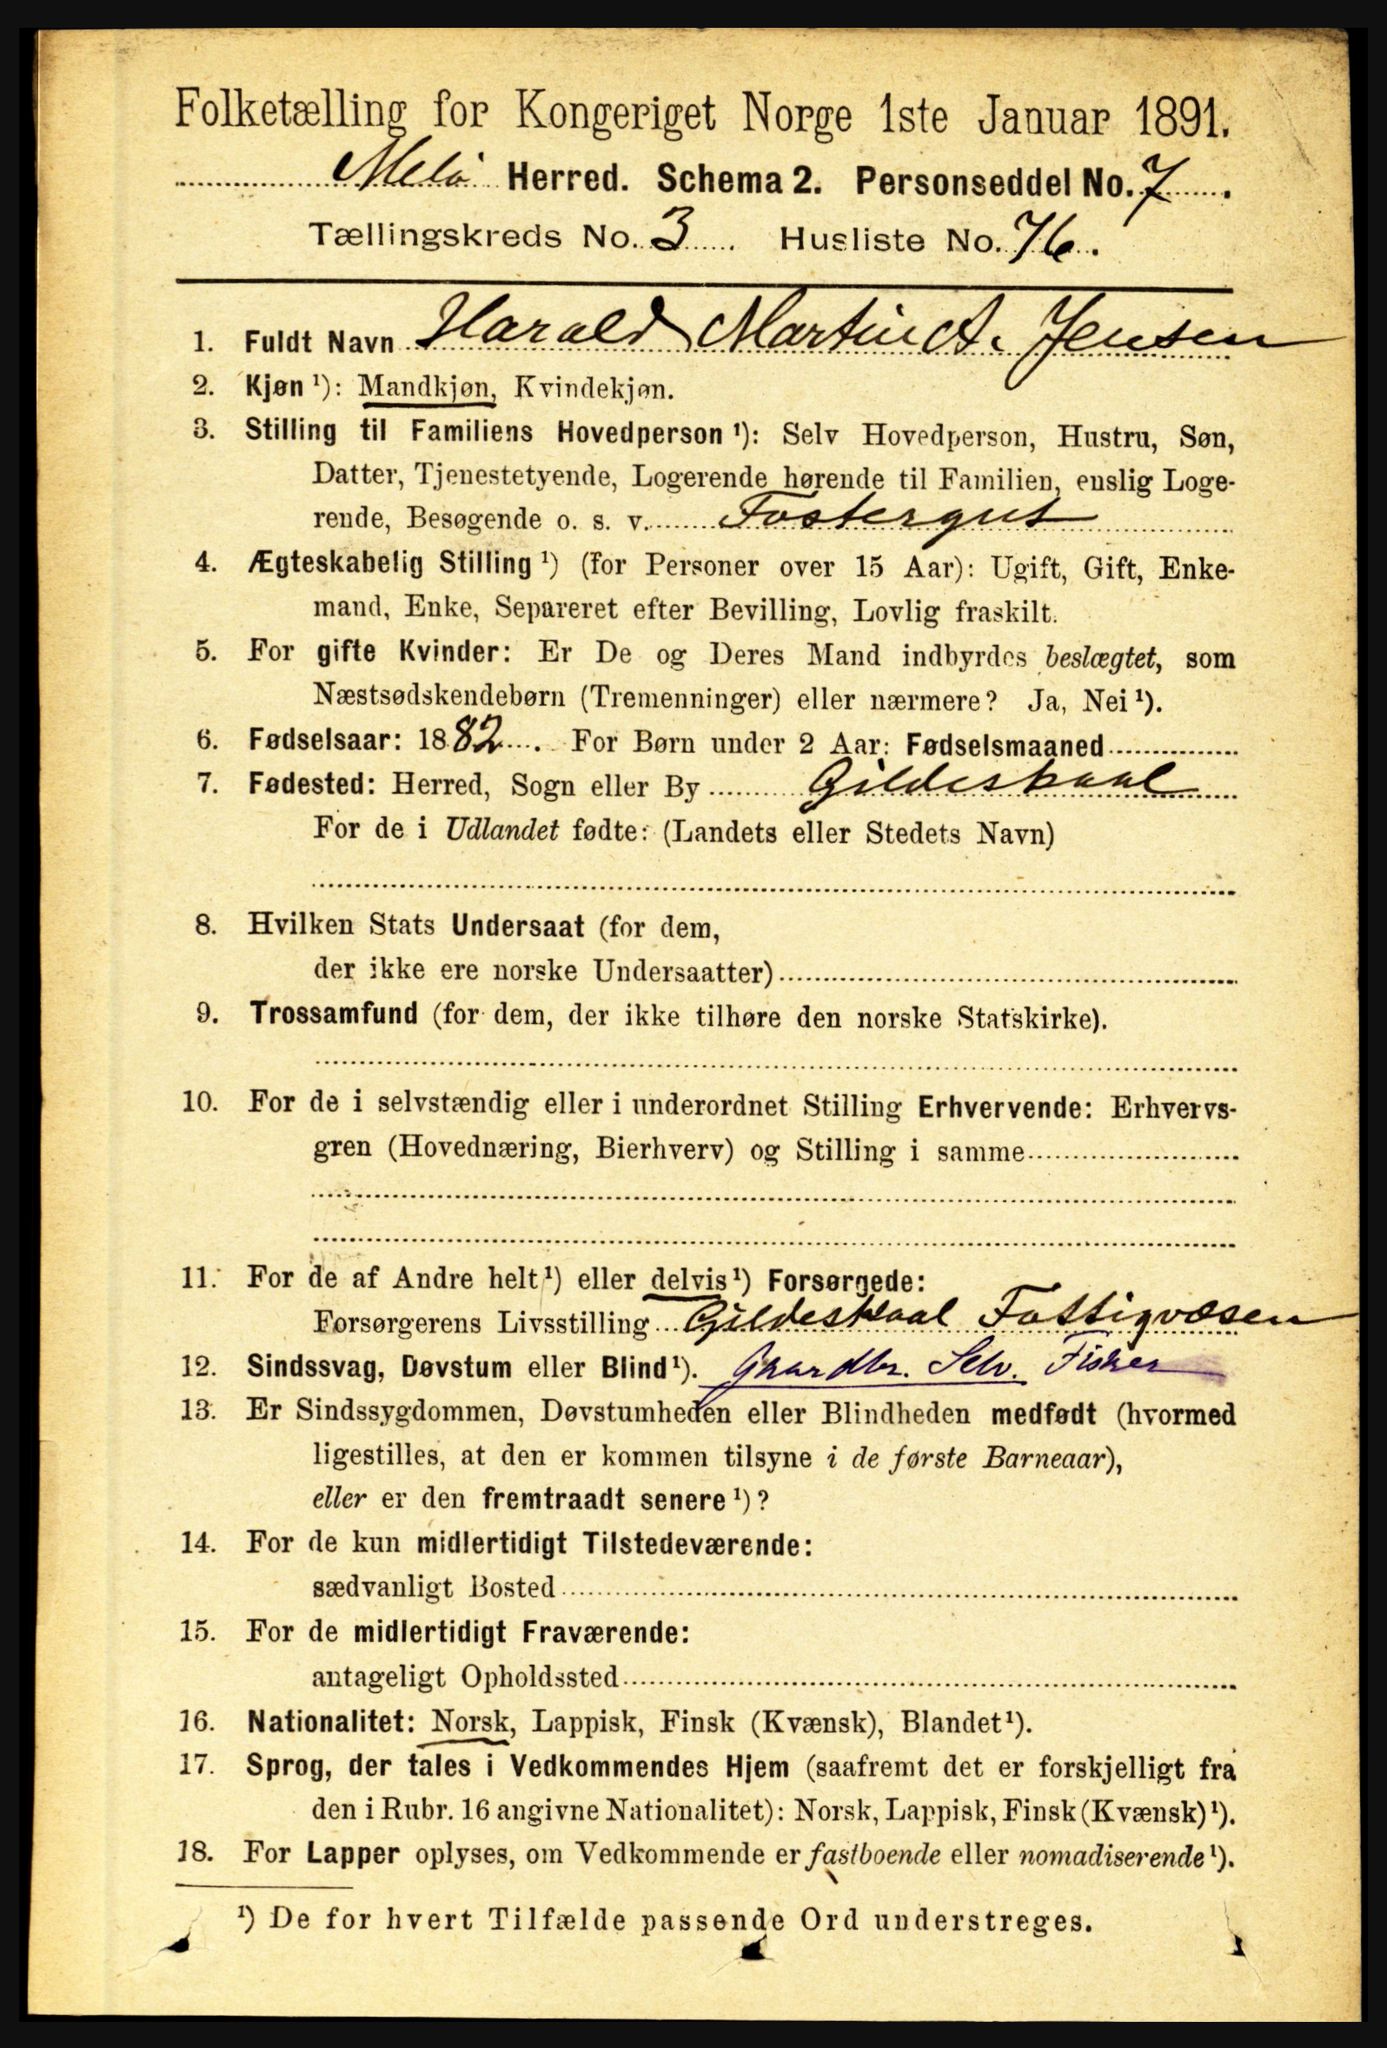 Folketælling for Kongeriget Norge 1ste Januar 1891.
Melö Herred. Schema 2. Personseddel No. 7.
Tællingskreds No. 3. Husliste No. 76.
1. Fuldt Navn Harald Martin A. Jensen
2. Kjøn ¹): Mandkjøn, Kvindekjøn.
3. Stilling til Familiens Hovedperson ¹): Selv Hovedperson, Hustru, Søn,
Datter, Tjenestetyende, Logerende hørende til Familien, enslig Loge-
rende, Besøgende o. s. v. Fostergut
4. Ægteskabelig Stilling ¹) (for Personer over 15 Aar): Ugift, Gift, Enke-
mand, Enke, Separeret efter Bevilling, Lovlig fraskilt.
5. For gifte Kvinder: Er De og Deres Mand indbyrdes beslægtet, som
Næstsødskendebørn (Tremenninger) eller nærmere? Ja, Nei ¹).
6. Fødselsaar: 1882. For Børn under 2 Aar: Fødselsmaaned
7. Fødested: Herred, Sogn eller By Gildeskaal
For de i Udlandet fødte: (Landets eller Stedets Navn)
8. Hvilken Stats Undersaat (for dem,
der ikke ere norske Undersaatter)
9. Trossamfund (for dem, der ikke tilhøre den norske Statskirke).
10. For de i selvstændig eller i underordnet Stilling Erhvervende: Erhvervs-
gren (Hovednæring, Bierhverv) og Stilling i samme
11. For de af Andre helt ¹) eller delvis ¹) Forsørgede:
Forsørgerens Livsstilling Gildeskaal Fattigvæsen
12. Sindssvag, Døvstum eller Blind ¹). Gaardbr. Selv. Fisker
13. Er Sindssygdommen, Døvstumheden eller Blindheden medfødt (hvormed
ligestilles, at den er kommen tilsyne i de første Barneaar),
eller er den fremtraadt senere ¹)?
14. For de kun midlertidigt Tilstedeværende:
sædvanligt Bosted
15. For de midlertidigt Fraværende:
antageligt Opholdssted
16. Nationalitet: Norsk, Lappisk, Finsk (Kvænsk), Blandet ¹).
17. Sprog, der tales i Vedkommendes Hjem (saafremt det er forskjelligt fra
den i Rubr. 16 angivne Nationalitet): Norsk, Lappisk, Finsk (Kvænsk) ¹).
18. For Lapper oplyses, om Vedkommende er fastboende eller nomadiserende ¹).
¹) De for hvert Tilfælde passende Ord understreges.